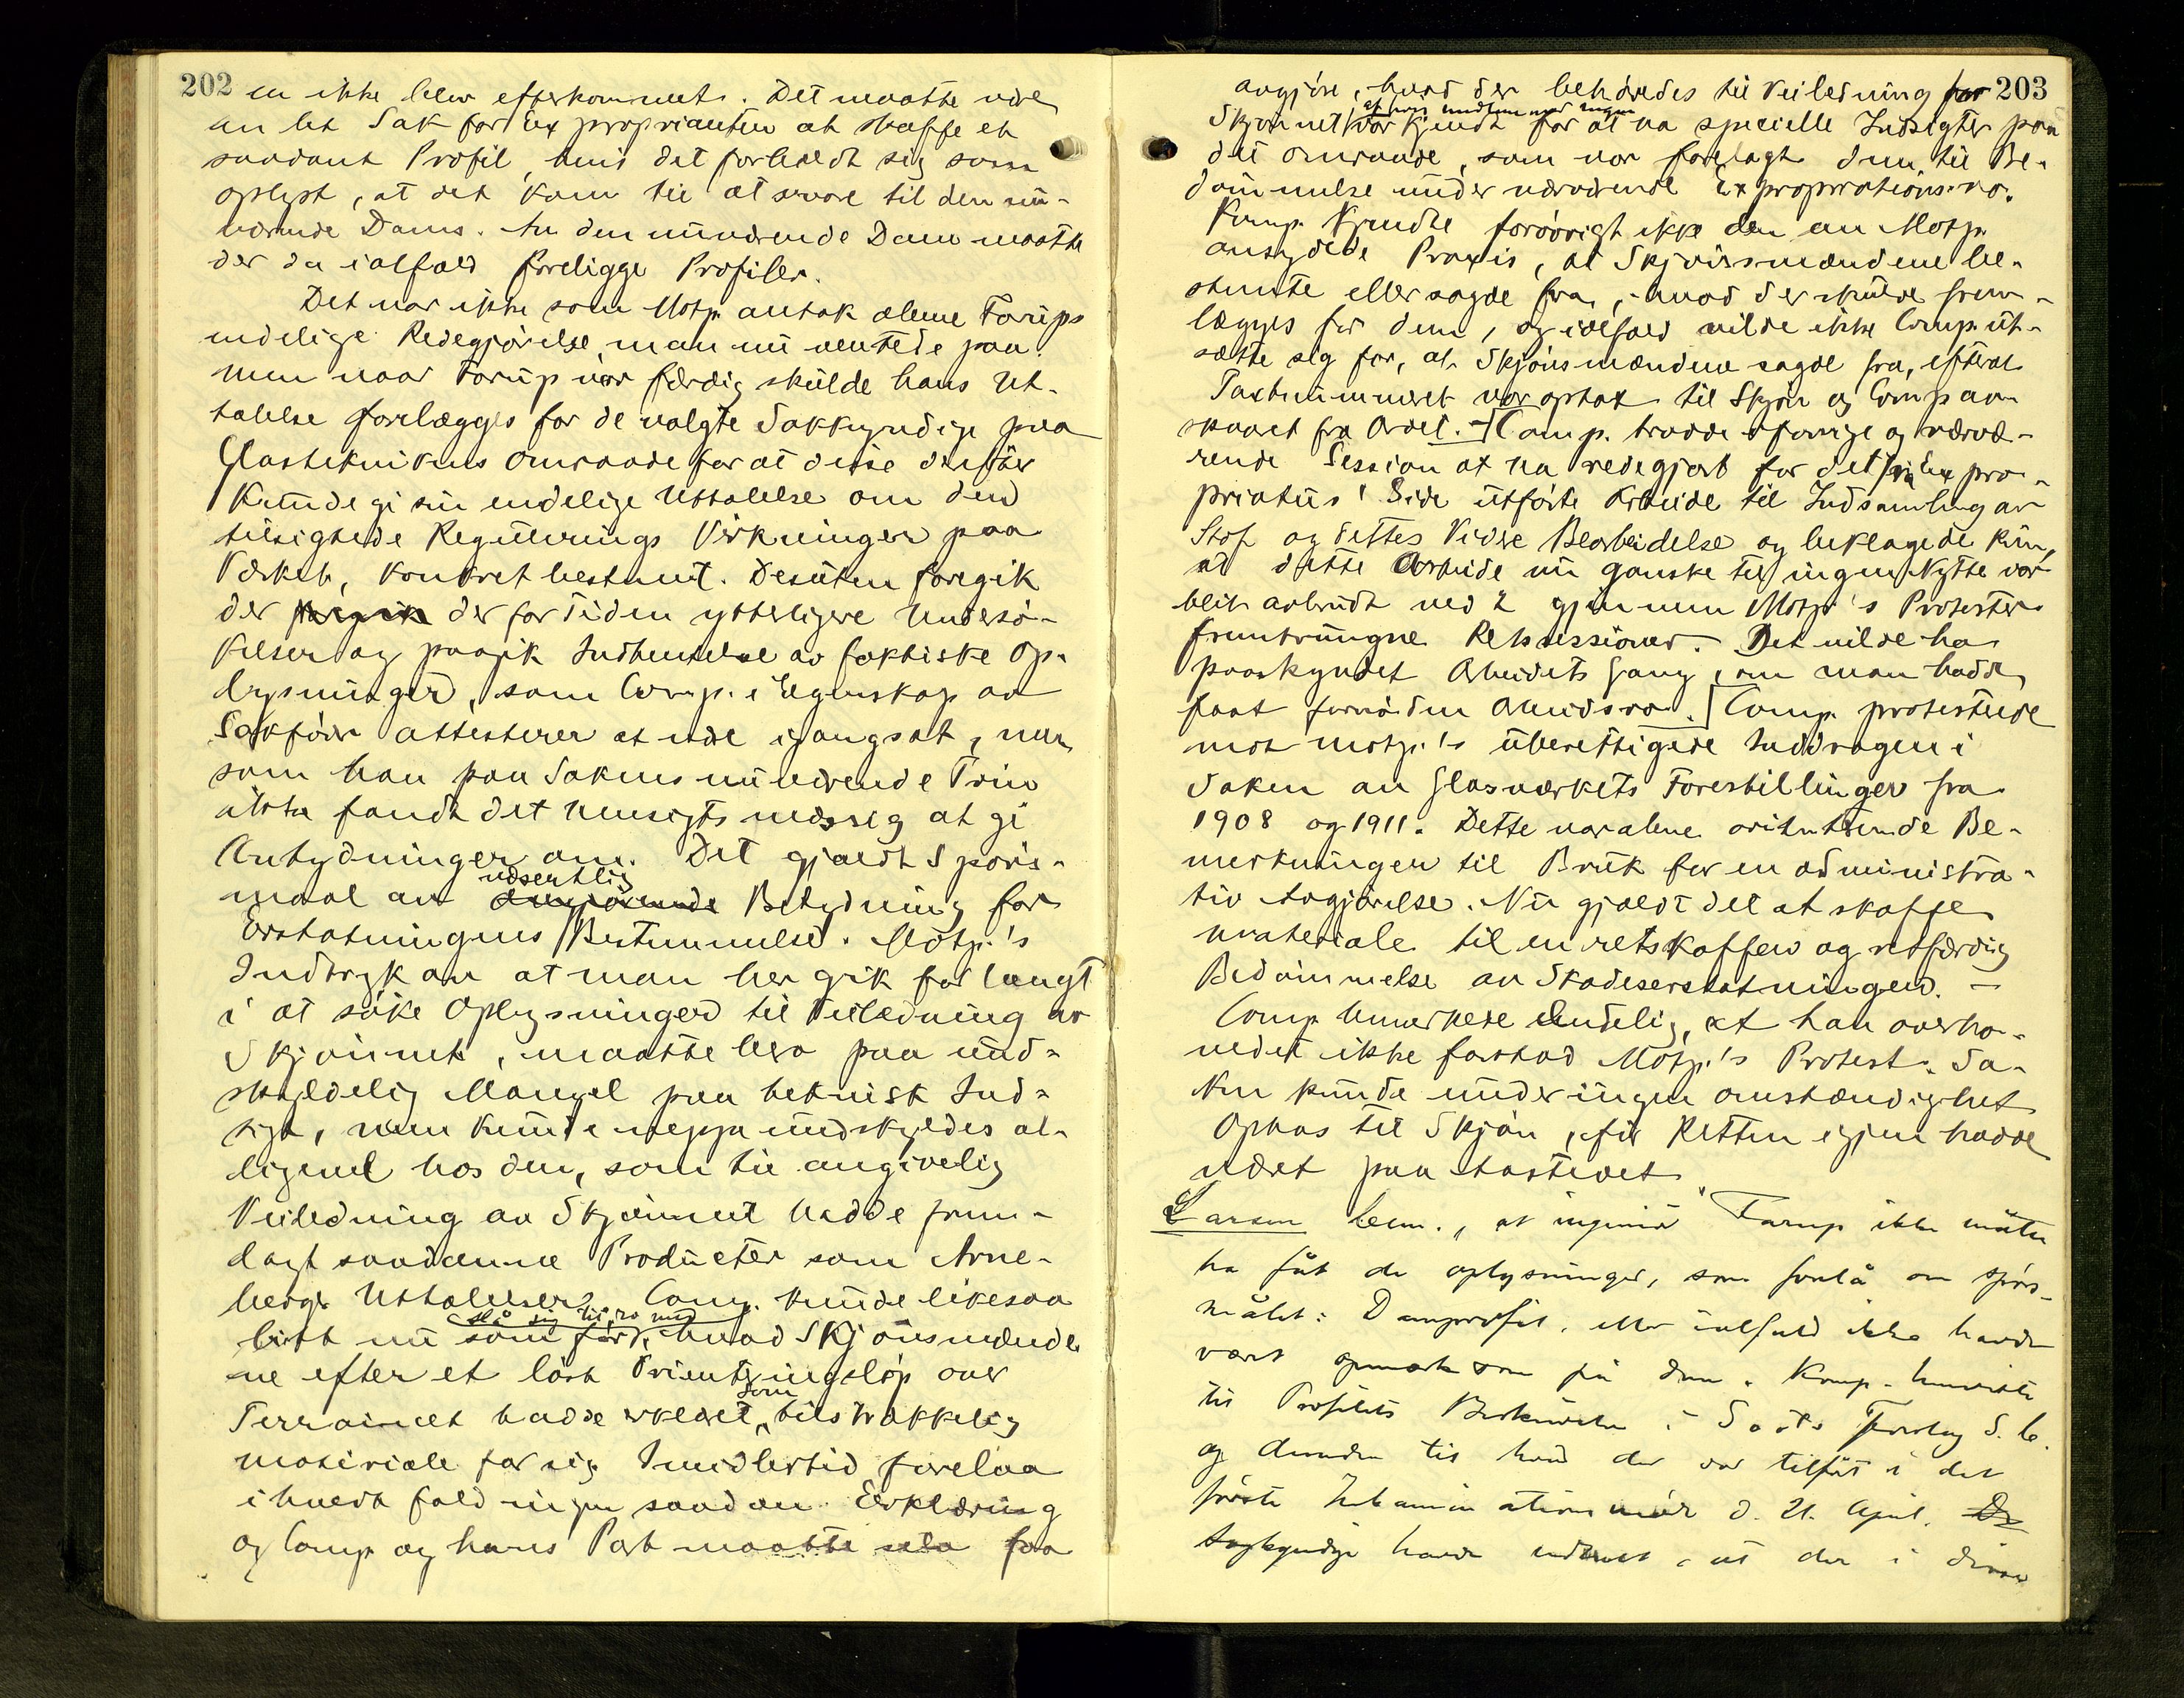 202
en ikke blev efterkommet. Det maatte være
en let Sak for Expropriaten at skaffe et
saadant Profil, hvis det forholdt sig som
oplyst, at det kom til at svare til den nu-
værende Dams. Av den nuværende Dam maatte
der da ialfald foreligge Profiler.
Det var ikke som Motp. antok alene Farups
endelige Redegjørelse, man nu ventede paa.
men naar Farup var færdig skulde hans Ut-
talelse forelægges for de valgte Sakkyndige paa
Glasteknikens Omraade for at disse derefter
kunde gi sin endelige Uttalelse om den
tilsigtede Regulerings Virkninger paa
Verket, konkret bestemt. Desuten foregik
der foregik der for Tiden ytterligere Undersø-
kelser og paagik Indhentelse av faktiske Op-
lysninger, som Comp. i Egenskap av
Sakfører attesterer at være igangsat, men
som han paa Sakens nuværende Trin
ikke fandt det hensigtsmæssig at gi
Antydninger om. Det gjaldt Spørs-
væsentlig
maal av avgjørende Betydning for
Erstatningens Bestemmelse. Motp.'s
Indtryk av at man her gik for langt
i at søke Oplysninger til Veiledning av
Skjønnet, maatte bero paa und-
skyldelig Mangel paa teknisk Ind-
sigt, men kunde neppe undskyldes al-
ligevel hos den, som til angivelig
Veiledning av Skjønnet hadde frem-
lagt saadanne Producter som Arne-
bergs Uttalelser. Comp. kunde likesaa
slå sig til ro med
litt nu som før, hvad Skjønsmænde
ne efter et løst Orienteringsløp over
som
Terrainet hadde erklæret tilstrækkelig
materiale for sig. Imidlertid forelaa
ihvertfald ingen saadan Erklæring
og Comp. og hans Part maatte selv faa
203
avgjøre, hvad der behøvedes til Veiledning for
at hvis medlemmer ingen
Skjønnet var kjendt for at ha specielle Indsigter paa
det omraade, som var forelagt dem til Be-
dømmelse under nærværende Expropriationssa.
Komp. kjendte forøvrigt ikke den av Motp.
antydede Praxis, at Skjønsmændene be-
stemte eller sagde fra, hvad der skulde frem-
lægges for dem, og ialfald vilde ikke Comp. ut-
sætte sig for, at Skjønsmændene sagde fra, efterat
Taxtnummeret var optat til Skjøn og Comp. av-
skaaret fra Ordet. – Comp. trodde i forrige og nærvæ-
rende Session at ha redegjort for det fra Expro-
priatus' Side utførte Arbeide til Indsamling av
Stof og dettes videre Bearbeidelse og beklagede kun,
at dette Arbeide nu ganske til ingen Nytte var
blit avbrudt ved 2 gjennem Motp.'s Protester
fremtvungne Retssessioner. Det vilde ha
paaskyndet Arbeidets Gang, om man hadde
faat fornøden Arbeidsro. Comp. protesterede
mot motp.'s uberettigede Inddragen i
Saken av Glasværkets Forestillinger fra
1908 og 1911. Dette var alene orienterende Be-
merkninger til Bruk for en administra-
tiv Avgjørelse. Nu gjaldt det at skaffe
materiale til en retskaffen og retfærdig
Bedømmelse av Skadeserstatningen. –
Comp. bemerkede endelig, at han overho-
vedet ikke forstod Motp.'s Protest. Sa-
ken kunde under ingen omstændighet
Optas til Skjøn, før Retten igjen hadde
været paa Aastedet.
Larsen bem., at ingeniør Farup ikke måtte
ha fåt de oplysninger, som forelå om spørs-
målet: Damprofil, eller ialfald ikke havde
været opmerksom på dem. Komp. henviste
til Profilets Beskrivelse i Saxts Forslag S. 6.
og desuden til hvad der var tilført i det
første Examinationsmøde d. 21. April. De
sagkyndige havde erklæret, at der i disse